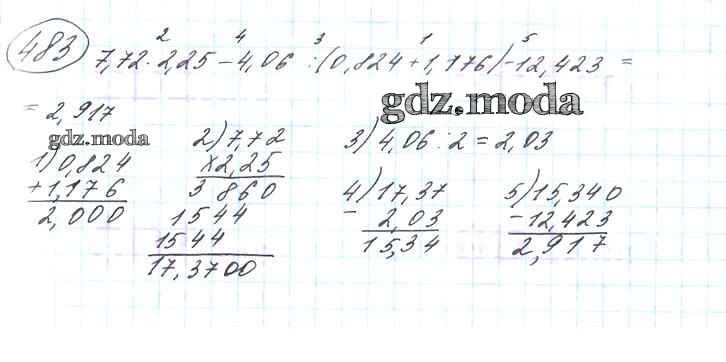 483
2 4 3 1 5
7,72 · 2,25 - 4,06 : (0,824 + 1,176) - 12,423 =
= 2,917
gdz.moda
gdz.moda
1) 0,824
+ 1,176
2,000
2) 7,72
x 2,25
3860
1544
1544
17,3700
3) 4,06 : 2 = 2,03
4) 17,37
- 2,03
15,34
5) 15,340
- 12,423
2,917